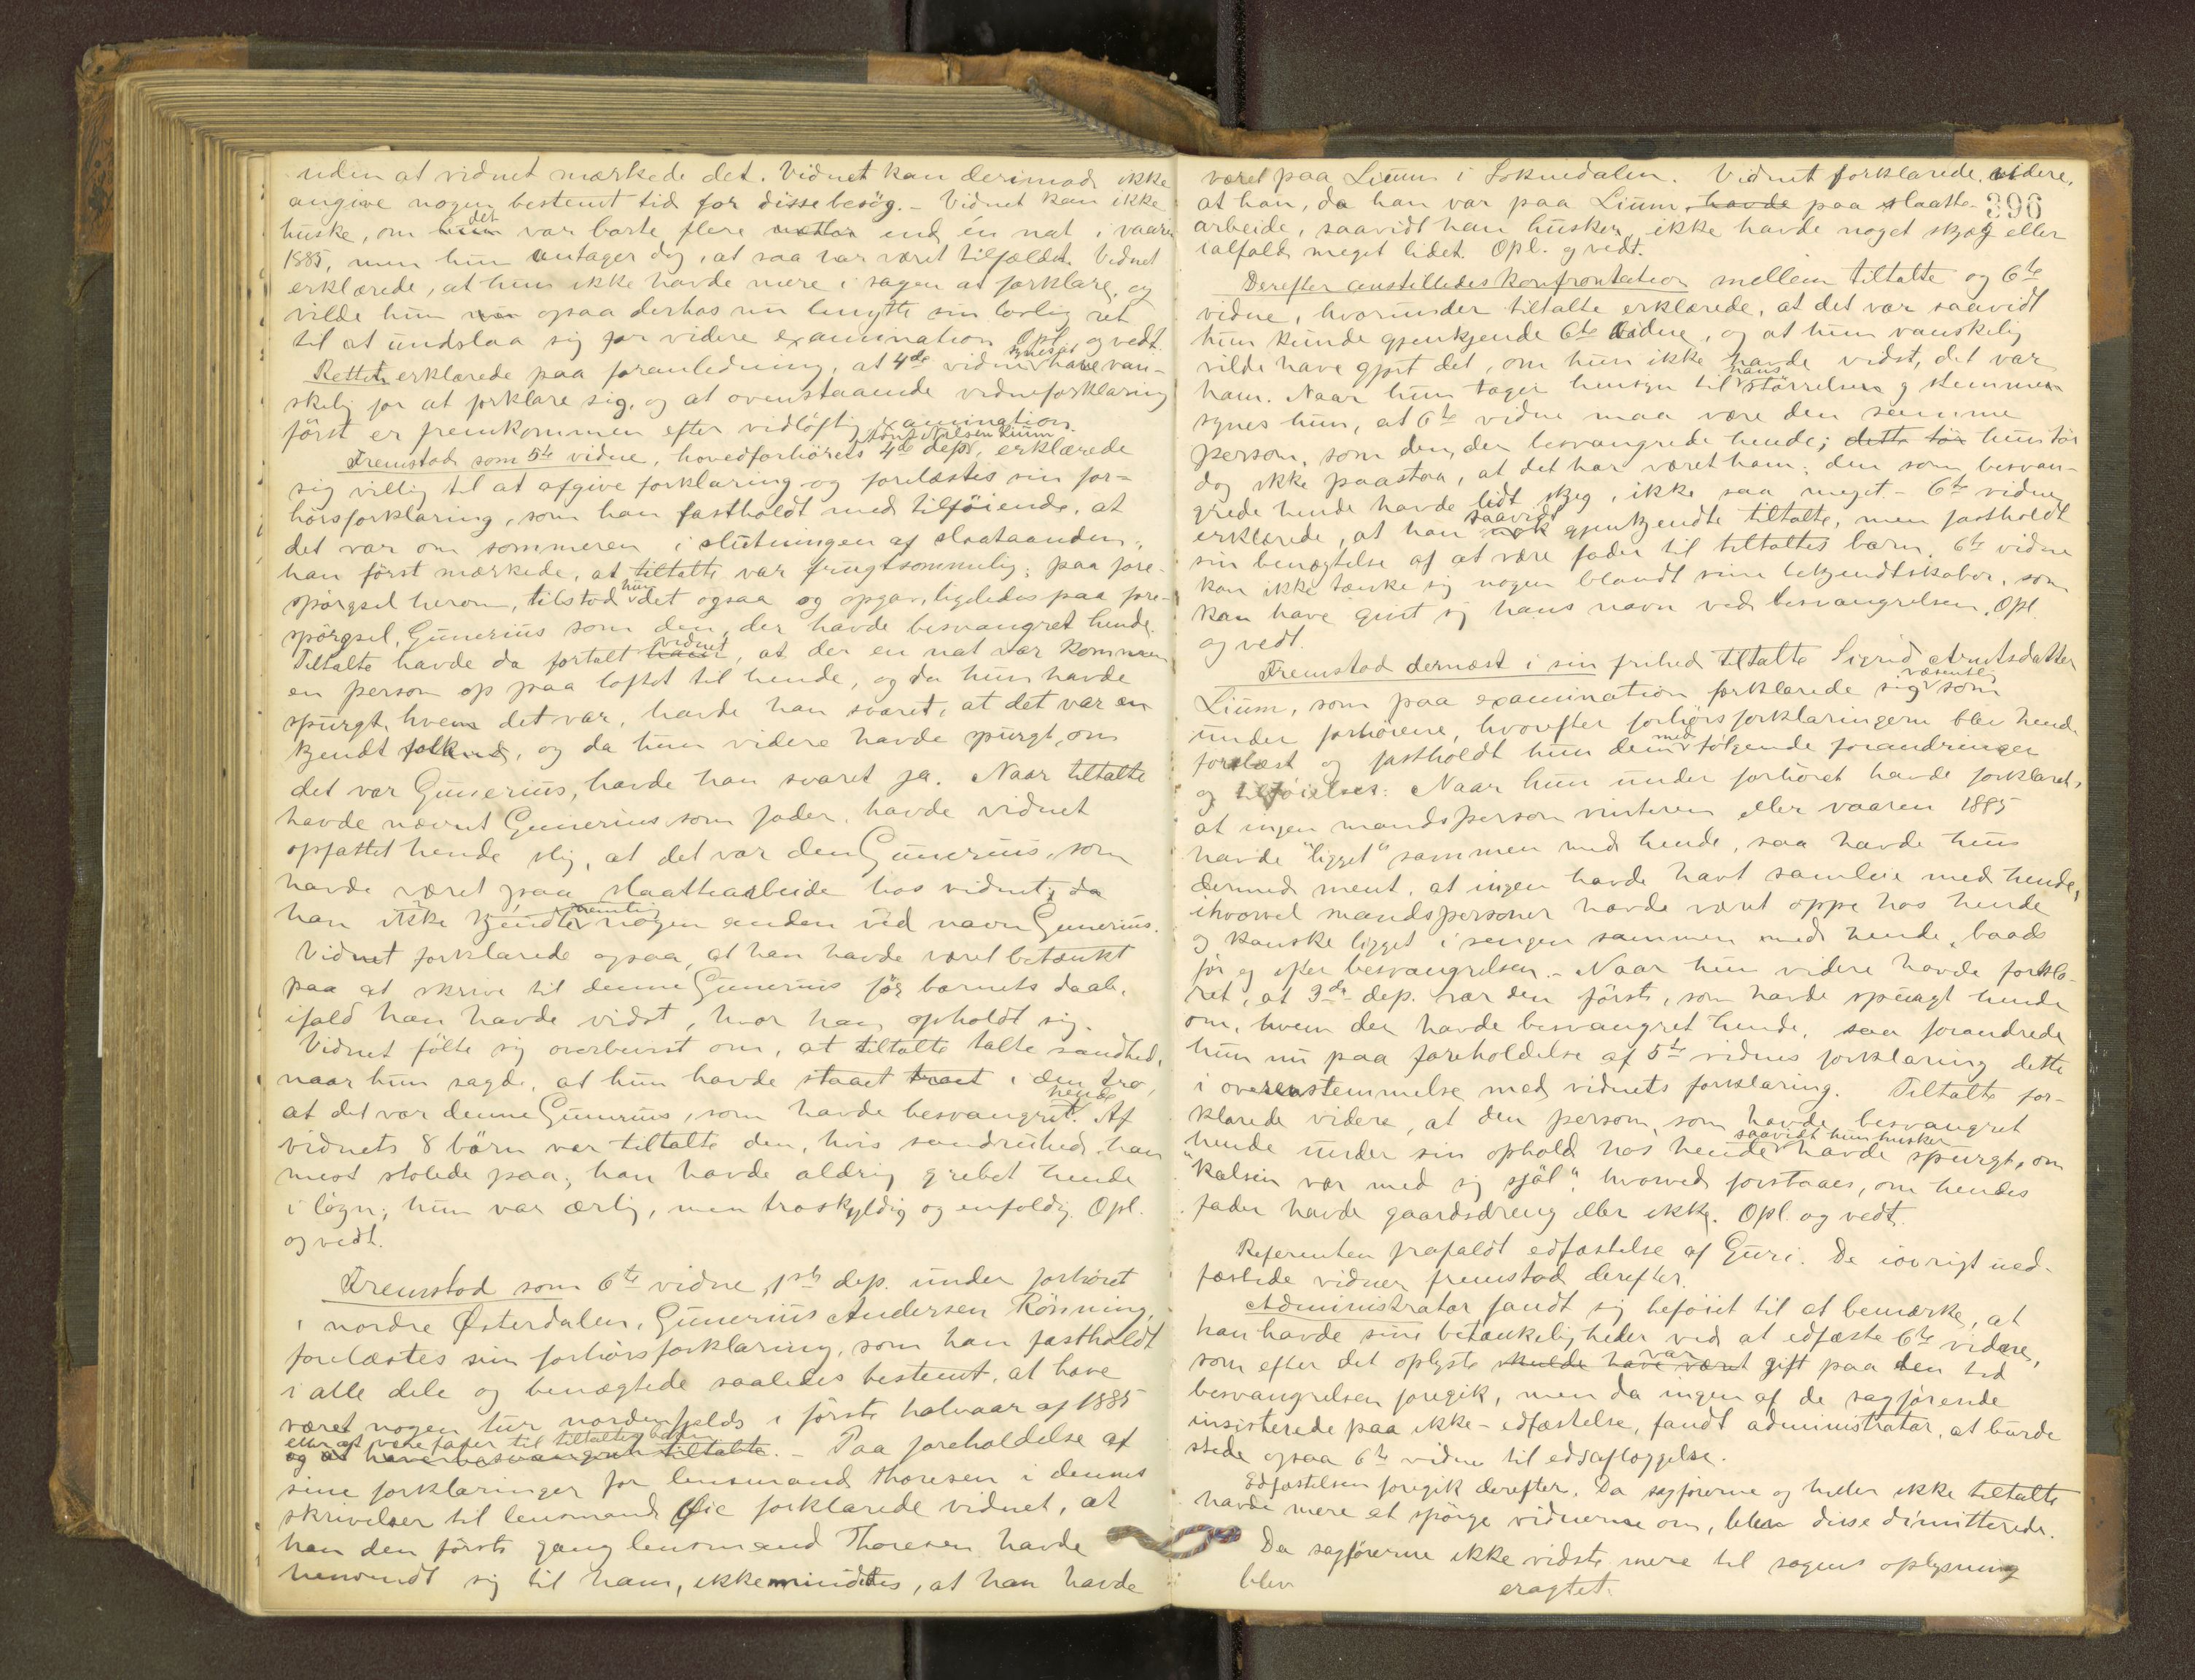 uden at vidnet mærkede det. Vidnet kan derimod ikke
angive nogen bestemt tid for disse besøg. - Vidnet kan ikke
huske, om det var borte flere nætter end én nat i vaaren
1885, men hun antager dog, at saa har været tilfældet. Vidnet
erklærede, at hun ikke havde mere i sagen at forklare, og
vilde hun ogsaa derhos nu benytte sin lovlig ret
til at undslaa sig for videre examination. Opl. og vedt.
Retten erklærede paa foranledning, at 4de vidne synes at have van-
skelig for at forklare sig, og at ovenstaaende vidneforklaring
först er fremkommen efter vidlöftig examination.
Fremstod som 5te vidne, hovedforhörets 4de dep. Arnt Nilsen Lium, erklærede
sig villig til at afgive forklaring og forelæstes sin for-
hörsforklaring, som han fastholdt med tilföiende, at
det var om sommeren i slutningen af slaataanden,
han först mærkede, at tiltalte var frugtsommelig; paa fore-
spörgsel herom, tilstod hun det ogsaa og opgav, ligeledes paa fore-
spörgsel, Gunerius som den, der havde besvangret hende.
Tiltalte havde da fortalt vidnet, at der en nat var kommen
en person op paa loftet til hende, og da hun havde
spurgt, hvem det var, havde han svaret, at det var en
kjendt folkens, og da hun videre havde spurgt, om
det var Gunerius, havde han svaret ja. Naar tiltalte
havde nævnt Gunerius som fader, havde vidnet
opfattet hende slig, at det var den Gunerius, som
havde været paa slaattearbeide hos vidnet; da
han ikke kjendte nemlig nogen anden ved navn Gunerius.
Vidnet forklarede ogsaa, at han havde været betænkt
paa at skrive til denne Gunerius för barnets daab,
ifald han havde vidst, hvor han opholdt sig.
Vidnet fölte sig overbevist om, at tiltalte talte sandhed,
naar hun sagde, at hun havde staaet i den tro,
at det var denne Gunerius, som havde besvangret hende. Af
vidnets 8 börn var tiltalte den, hvis sandruhed han
mest stolede paa; han havde aldrig grebet hende
i lögn; hun var ærlig, men troskyldig og enfoldig. Opl.
og vedt.
Fremstod som 6te vidne, 1ste dep. under forhöret
i nordre Østerdalen, Gunerius Andersen Rönning,
forelæstes sin forhörsforklaring, som han fastholdt
i alle dele og benægtede saaledes bestemt, at have
været nogen tur nordenfjelds i förste halvaar af 1885
eller at være fader til tiltaltes barn
og at have besvangret tiltalte. - Paa foreholdelse af
sine forklaringer for lensmand Thoresen i dennes
skrivelser til lensmand Øie forklarede vidnet, at
han den förste gang lensmand Thoresen havde
henvendt sig til ham, ikke mindedes, at han havde
været paa Lium i Soknedalen. Vidnet forklarede videre,
at han, da han var paa Lium, havde paa slaatte-
396
arbeide, saavidt han husker, ikke havde noget skjæg eller
ialfald meget lidet. Opl. og vedt.
Derefter anstilledes konfrontation mellem tiltalte og 6te
vidne, hvorunder tiltalte erklærede, at det var saavidt
hun kunde gjenkjende 6te vidne, og at hun vanskelig
vilde have gjort det, om hun ikke havde vidst, det var
ham. Naar hun tager hensyn til hans störrelse og stemmen
synes hun, at 6te vidne maa være den samme
person, som den, der besvangrede hende; dette tör hun tör
dog ikke paastaa, at det har været ham; den som besvan-
grede hende havde lidt skjeg, ikke saa meget. - 6te vidne
erklærede, at han saavidt gjenkjendte tiltalte, men fastholdt
sin benægtelse af at være fader til tiltaltes barn. 6te vidne
kan ikke tænke sig nogen blandt sine bekjendtskaber, som
kan have givet sig hans navn ved besvangrelsen. Opl.
og vedt.
Fremstod dernæst i sin frihed tiltalte Sigrid Arntsdatter
Lium, som paa examination forklarede sig væsentlig som
under forhörene, hvorefter forhörsforklaringerne blev hende
forelæst og fastholdt hun dem med fölgende forandringer
og tilföielser: Naar hun under forhöret havde forklaret,
at ingen mandsperson vinteren eller vaaren 1885
havde "ligget" sammen med hende, saa havde hun
dermed ment, at ingen havde havt samleie med hende,
ihvorvel mandspersoner havde været oppe hos hende
og kanske ligget i sengen sammen med hende, baade
för og efter besvangrelsen. - Naar hun videre havde forkla-
ret, at 3de dep. var den förste, som havde spurgt hende
om, hvem der havde besvangret hende, saa forandrede
hun nu paa foreholdelse af 5te vidnes forklaring dette
i overensstemmelse med vidnets forklaring. Tiltalte for-
klarede videre, at den person, som havde besvangret
hende under sin ophold hos hende saavidt hun husker havde spurgt, om
"kalsin var med sig själ", hvorved forstaaes, om hendes
fader havde gaardsdreng eller ikke. Opl. og vedt.
Referenten frafaldt edfæstelse af Guri. De iövrigt ued-
fæstede vidner fremstod derefter.
Administrator fandt sig beföiet til at bemærke, at
han havde sine betænkeligheder ved at edfæste 6te vidne,
som efter det oplyste skulde have været var gift paa den tid
besvangrelsen foregik, men da ingen af de sagförende
insisterede paa ikke-edfæstelse, fandt administrator, at burde
stede ogsaa 6te vidne til edsaflæggelse.
Edfæstelsen foregik derefter. Da sagförerne og heller ikke tiltalte
havde mere at spörge vidnerne om, blev disse dimitterede.
Da sagförerne ikke vidste mere til sagens oplysning
blev
eragtet.